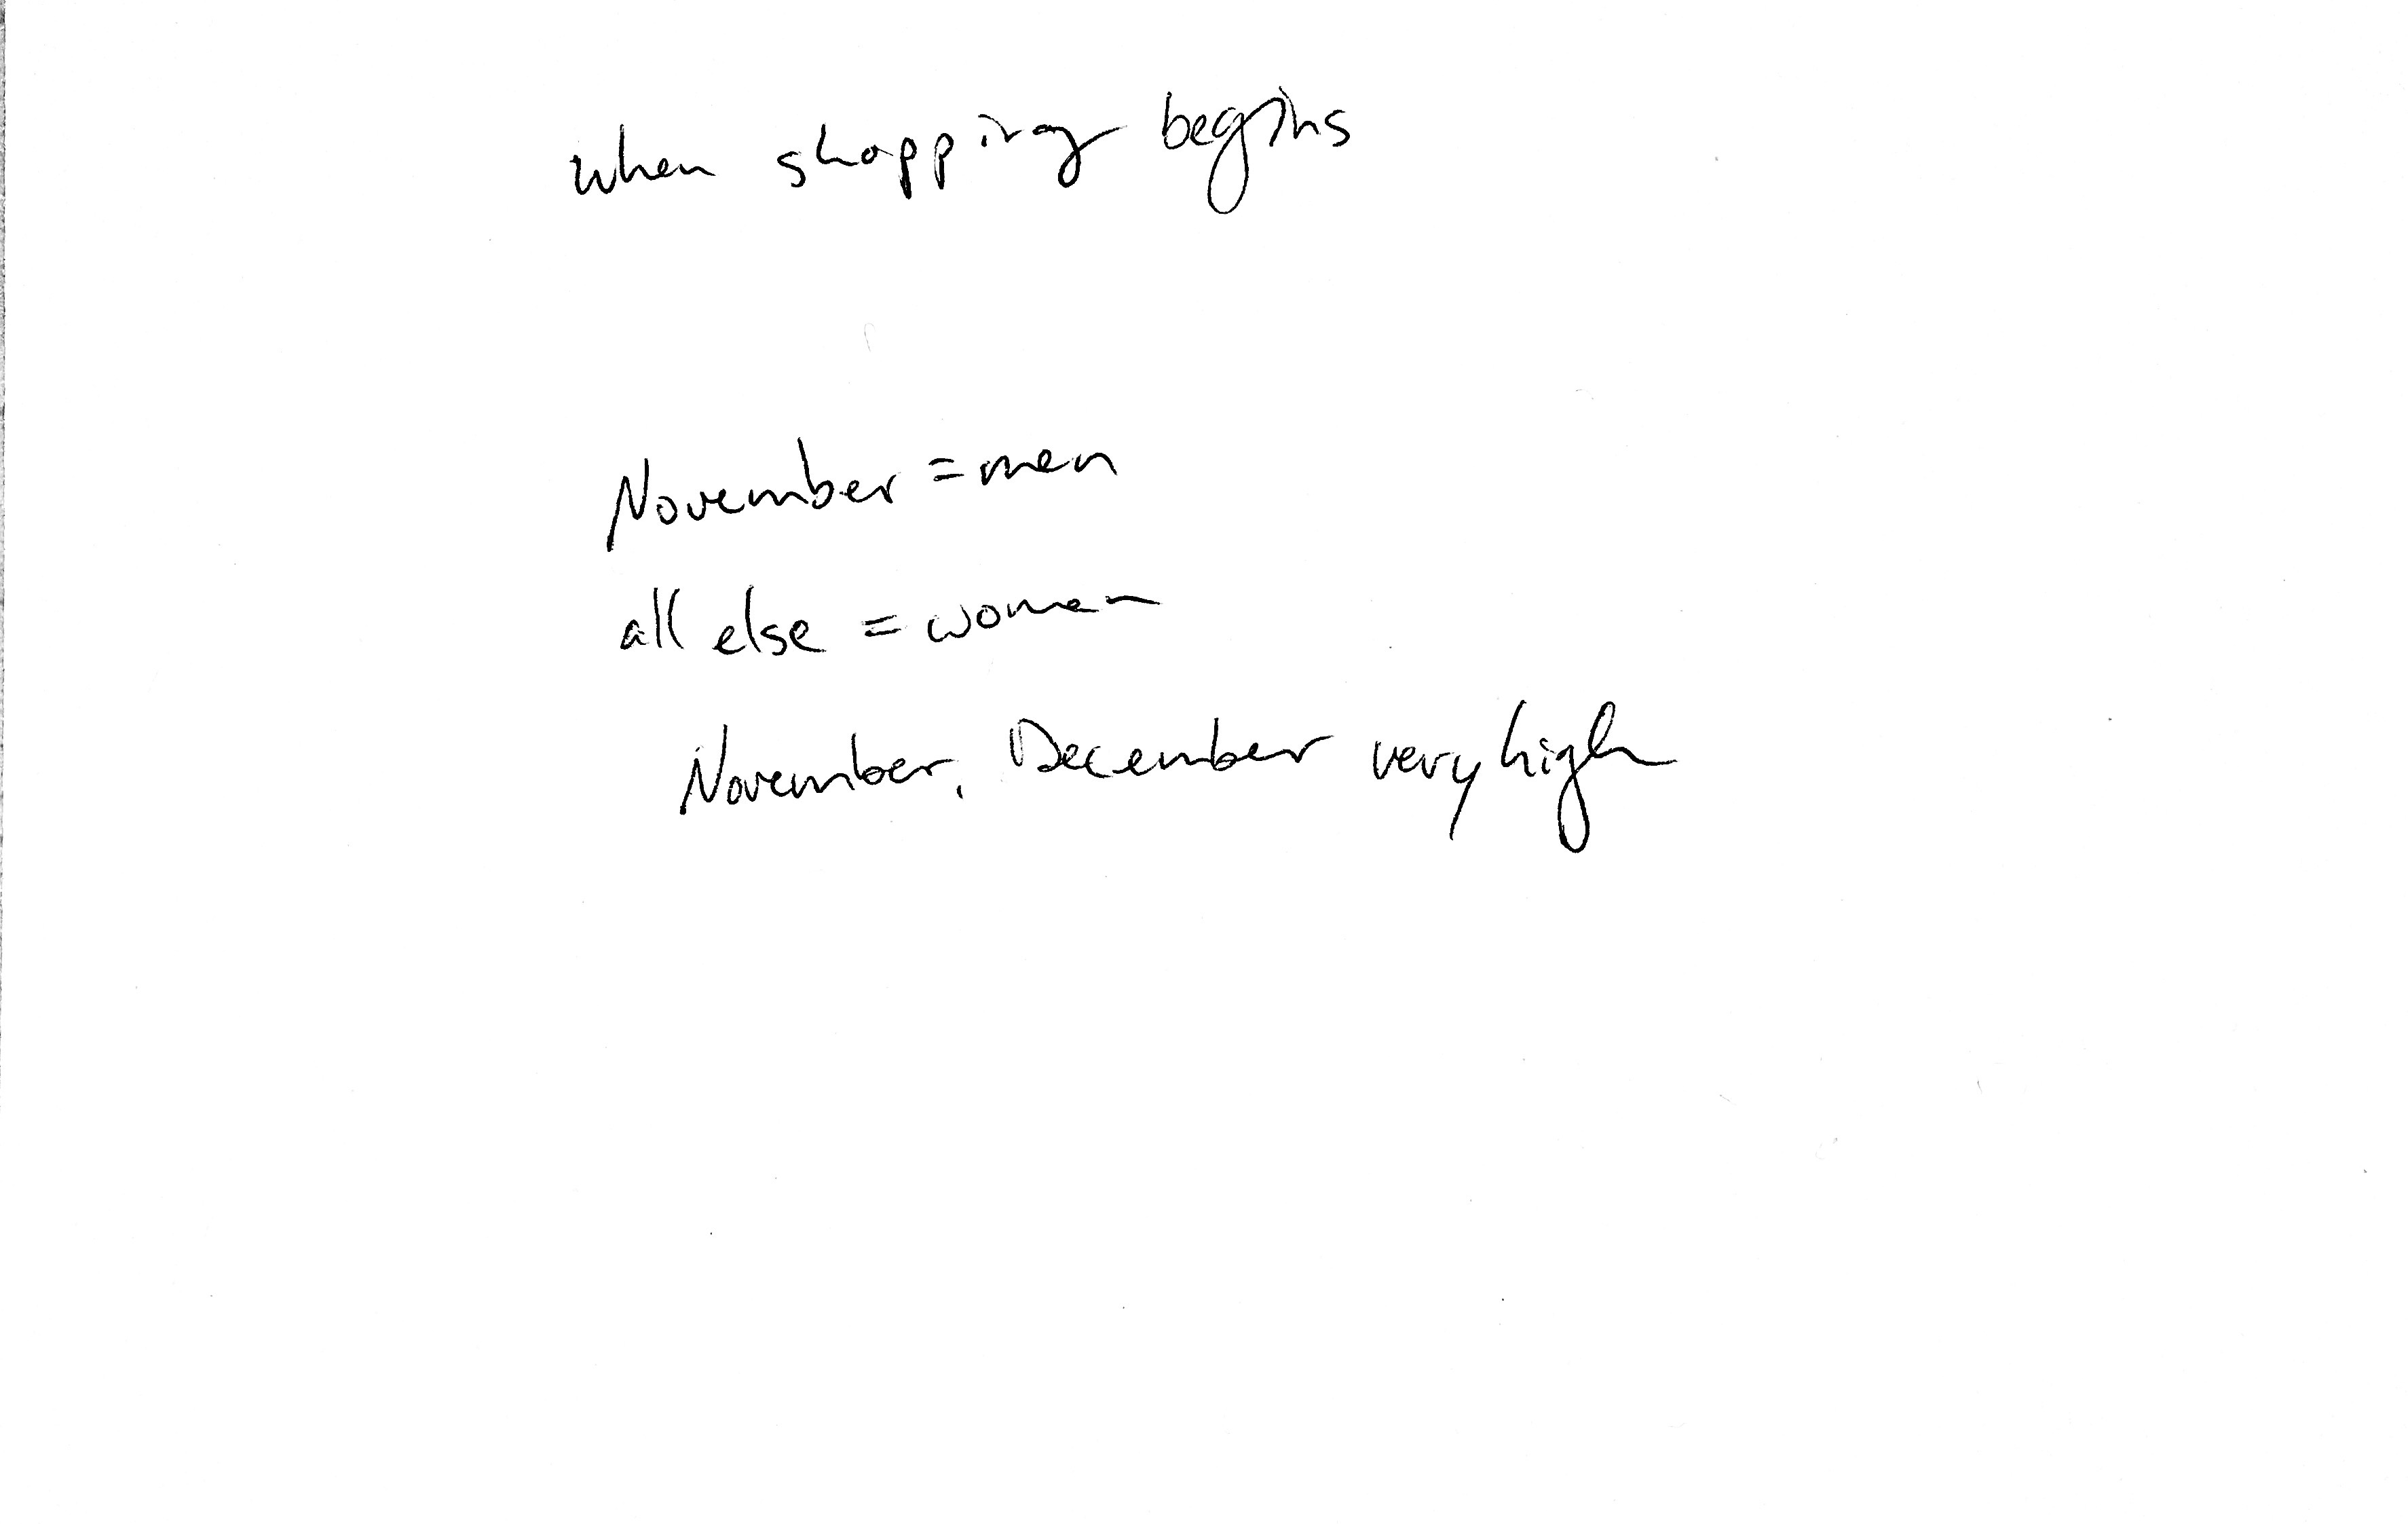 when shopping begins
November = men
all else = women
November, December very high